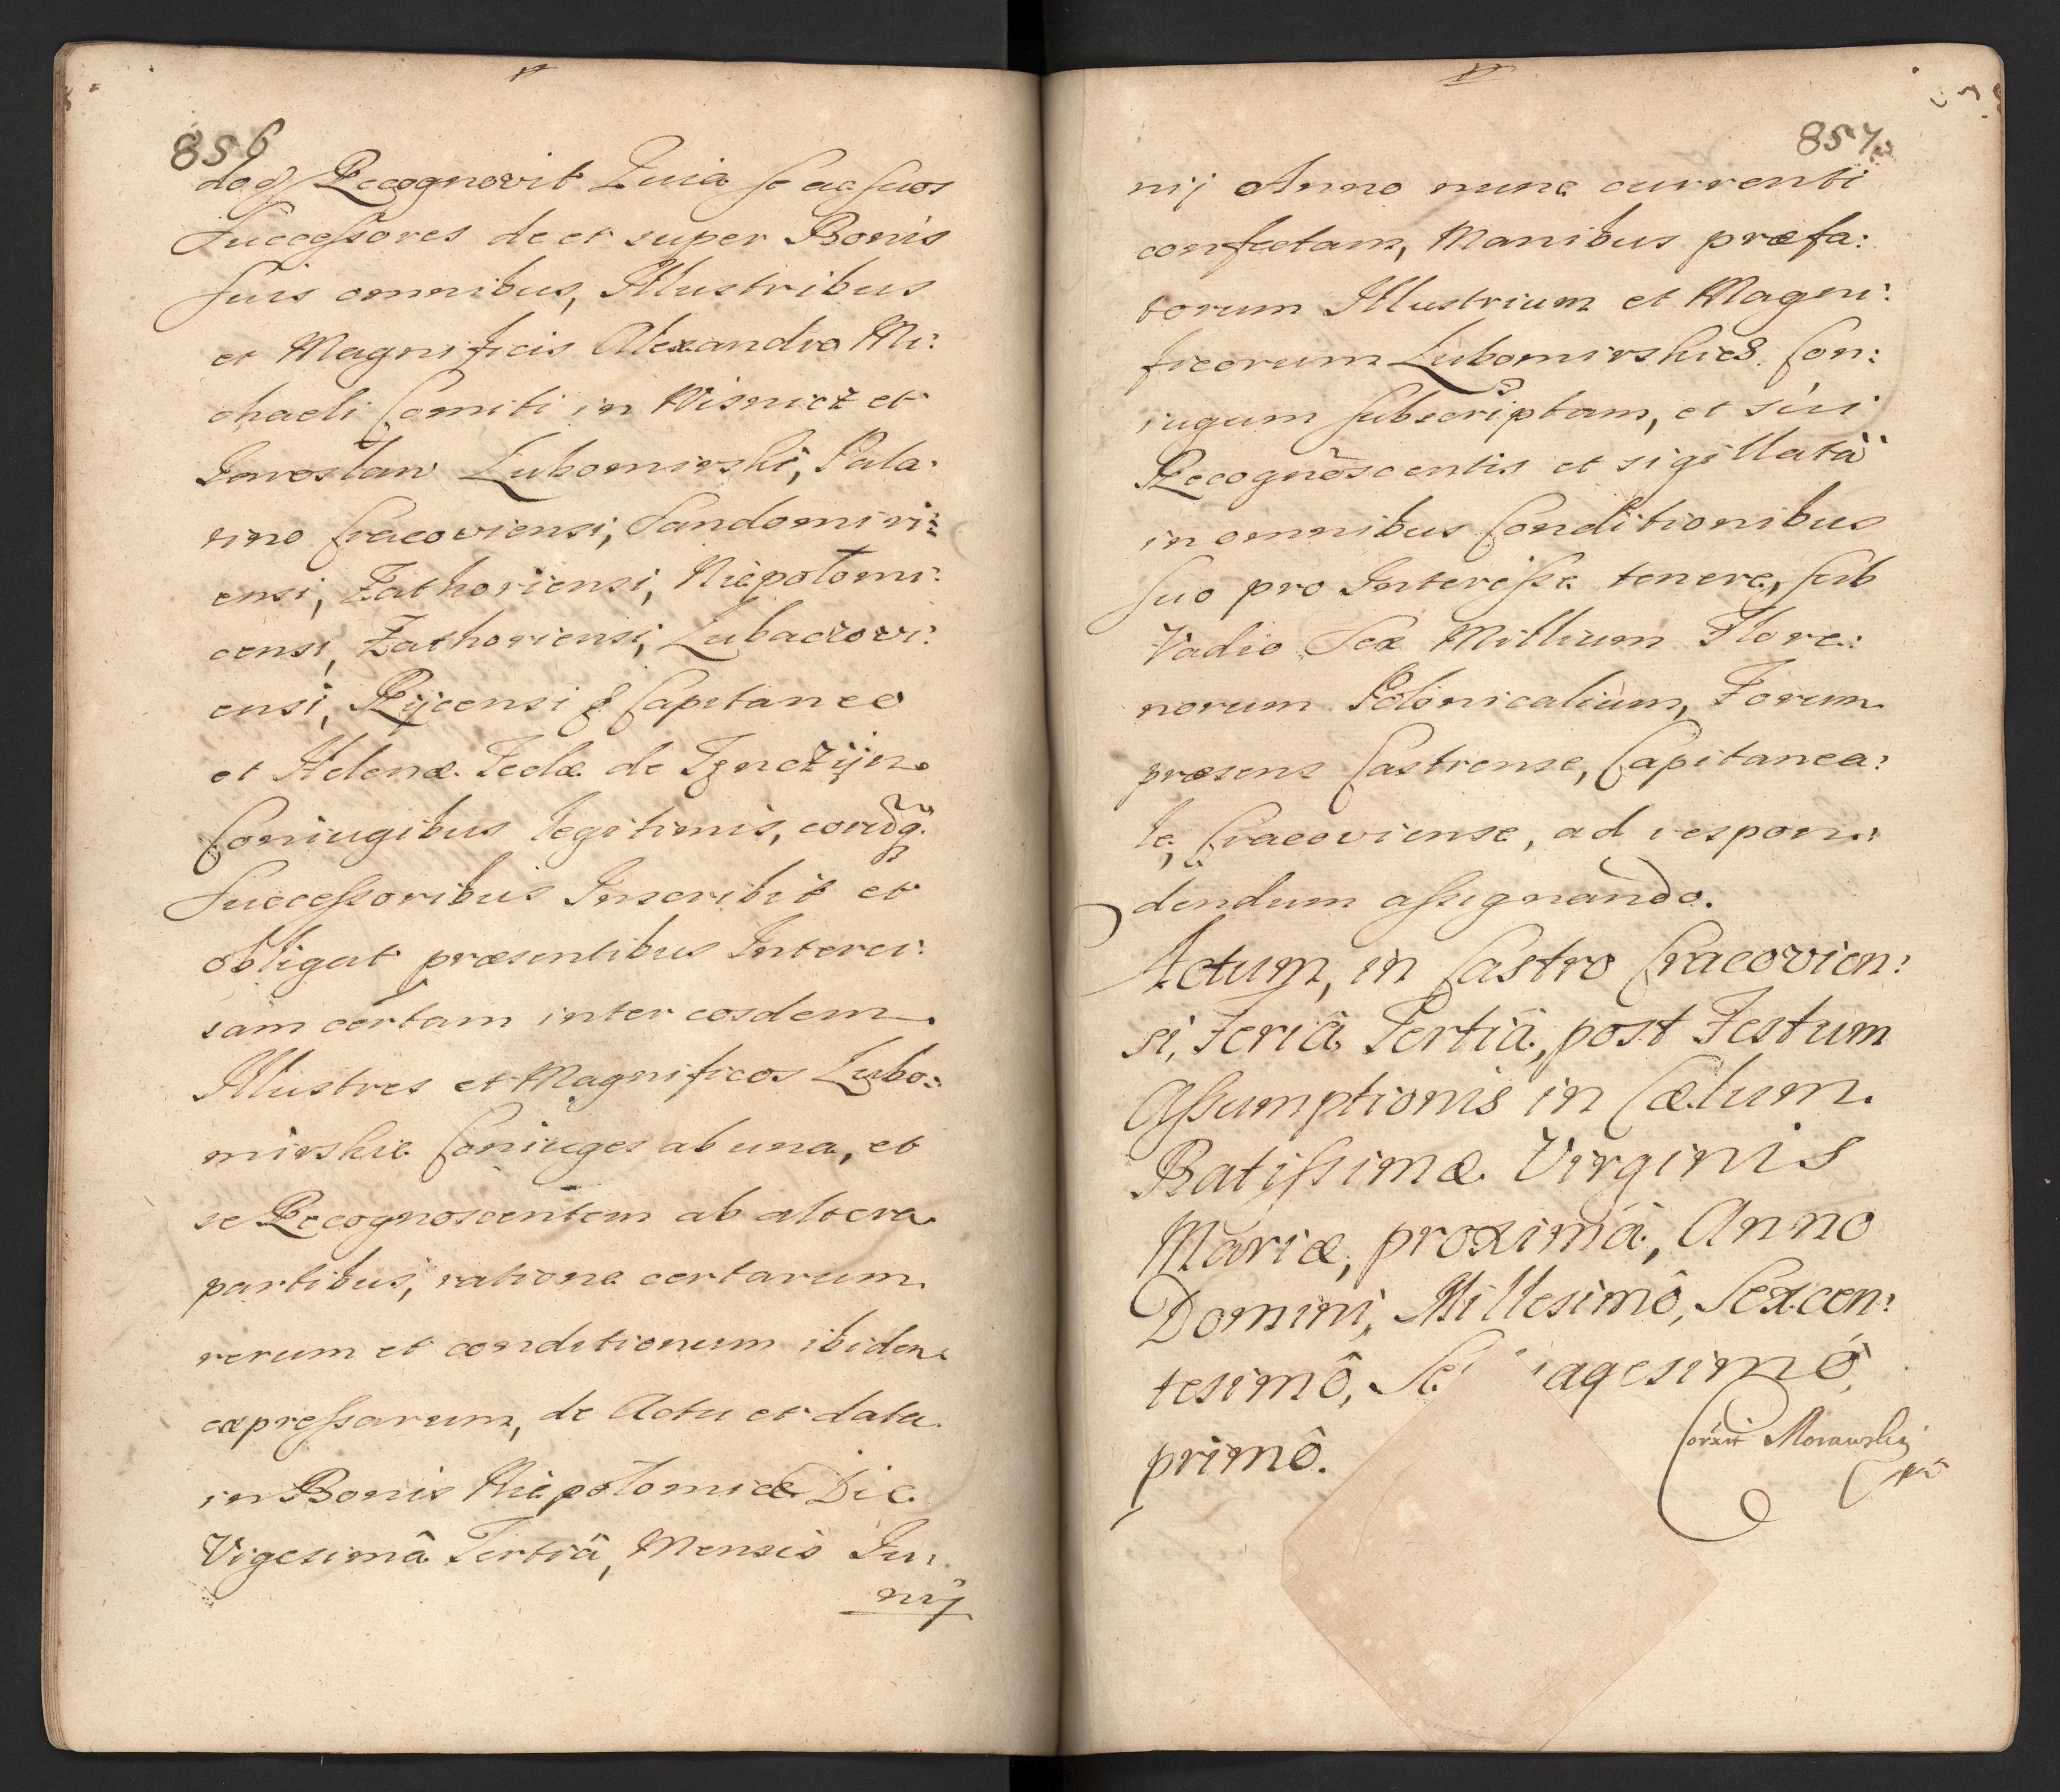 856
Recognovit Quia se ac suos
Successores de et super Bonis
suis omnibus, Illustribus
et Magnificis Alexandro Mi:
chaeli Comiti in Wisnicz et
Jaroslaw Lubomirski, Pala:
tino Cracoviensi, Sandomiri:
ensi, Zathoriensi, Niepolomi:
censi, Zathoriensi, Lubaczovi:
ensi, Rycensi & Capitaneo
et Helenæ Teclæ de Tęnczÿn
Coniugibus legitimis, eorūdq
Successoribus Inscribit et
obligat præsentibus Interci:
sam certam inter eosdem
Illustres et Magnificos Lubo:
mirskie Coniuges ab una, et
se Recognoscentem ab altera
partibus, ratione certarum
rerum et conditionum ibidem
expressarum, de Actu et data
in Bonis Niepolomicæ Die
Vigesimâ Tertiâ, Mensis Ju:
nij
857
nij Anno nunc currenti
confectam, Manibus præfa:
torum Illustrium et Magni:
ficorum Lubomirskies Con:
iugum subscriptam, et sui
Recognoscentis et sigillatã
in omnibus Conditionibus
suo pro Interesse tenere, sub
Vadio Sex Millium Flore:
norum Polonicalium, Forum
præsens Castrense, Capitanea:
le, Cracoviense, ad respon:
dendum assignando.
Actum, in Castro Cracovien:
si, Feriâ Tertiâ, post Festum
Assumptionis in Cælum
Batissimæ Virginis
Mariæ, proximâ, Anno
Domini, Millesimô, Sexcen:
tesimô, Se agesimô,
primô.
Corxit Morawski